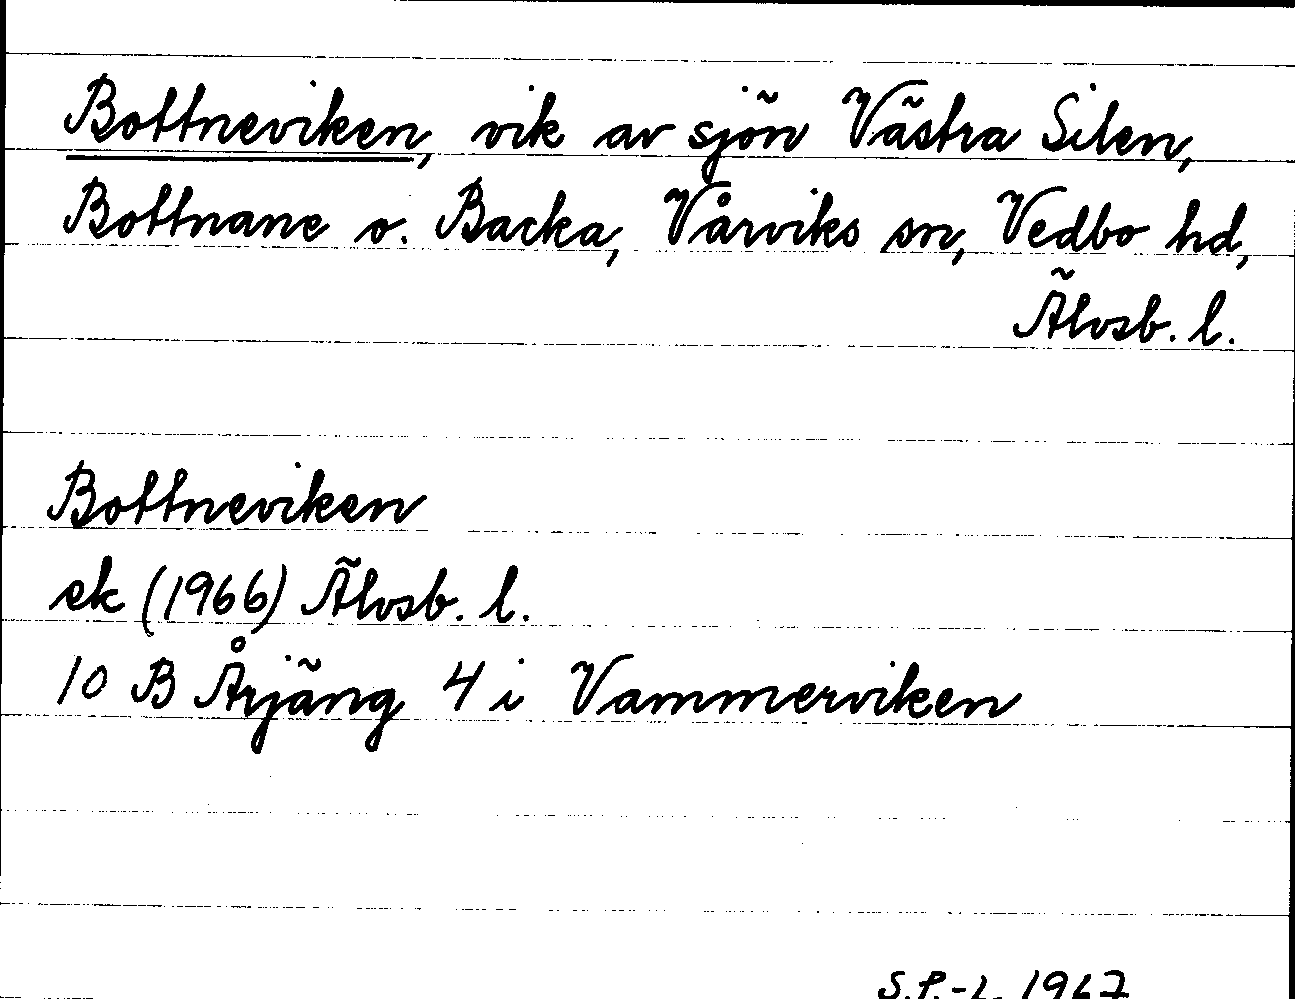 Bottneviken, vik av sjön Västra Silen,
Bottnane o. Backa, Vårviks sn, Vedbo hd,
Älvsb. l.
Bottneviken
ek (1966) Älvsb. l.
10 B Årjäng 4 i Vammerviken
S.P.-L. 1967